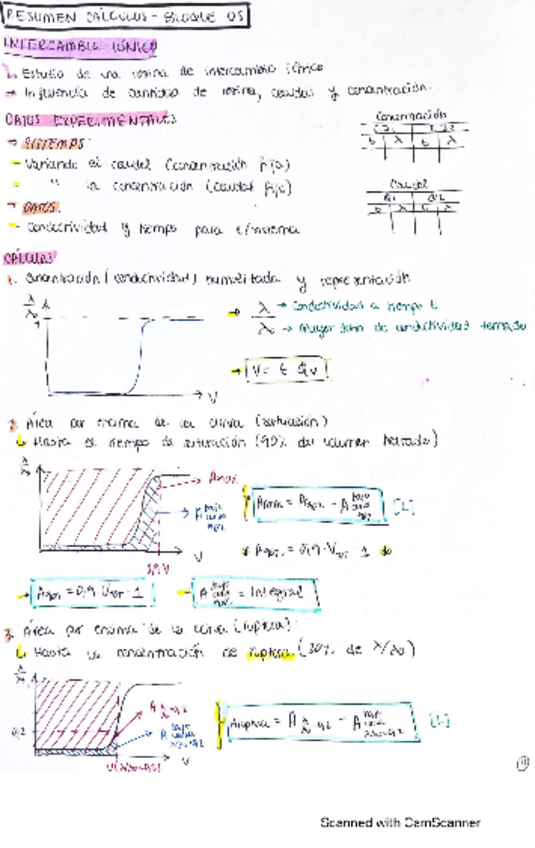 RESUMEN CÁLCULOS - BLOQUE 05
INTERCAMBIO IÓNICO
1. Estudio de una resina de intercambio iónico
→ Influencia de cantidad de resina, caudal y concentración.
DATOS EXPERIMENTALES
→ SISTEMAS:
- Variando el caudal (concentración fija)
- " la concentración (caudal fijo)
→ DATOS:
- Conductividad y tiempo para c/sistema
Concentración
C1 C2
t λ t λ
Caudal
Q1 Q2
t λ t λ
CÁLCULOS
1. Concentración (conductividad) normalizada y representación
λ/λ0
1
V
→ λ → Conductividad a tiempo t
λ0 → Mayor dato de conductividad tomado
→ V = t · Qv
2. Área por encima de la curva (saturación)
↳ Hasta el tiempo de saturación (90% del volumen tratado)
λ/λ0
V
0,9·V
A bajo curva
= A - A bajo curva [L]
= 0,9 · V · 1
→ = 0,9 · V · 1
→ A bajo curva = Integral
3. Área por encima de la curva (ruptura):
↳ Hasta la concentración de ruptura (20% de λ/λ0)
λ/λ0
0,2
V(λ/λ0=0,2)
V
A λ/λ0=0,2
A bajo curva λ/λ0=0,2
Aruptura = A λ/λ0=0,2 - A bajo curva λ/λ0=0,2 [L]
Scanned with CamScanner